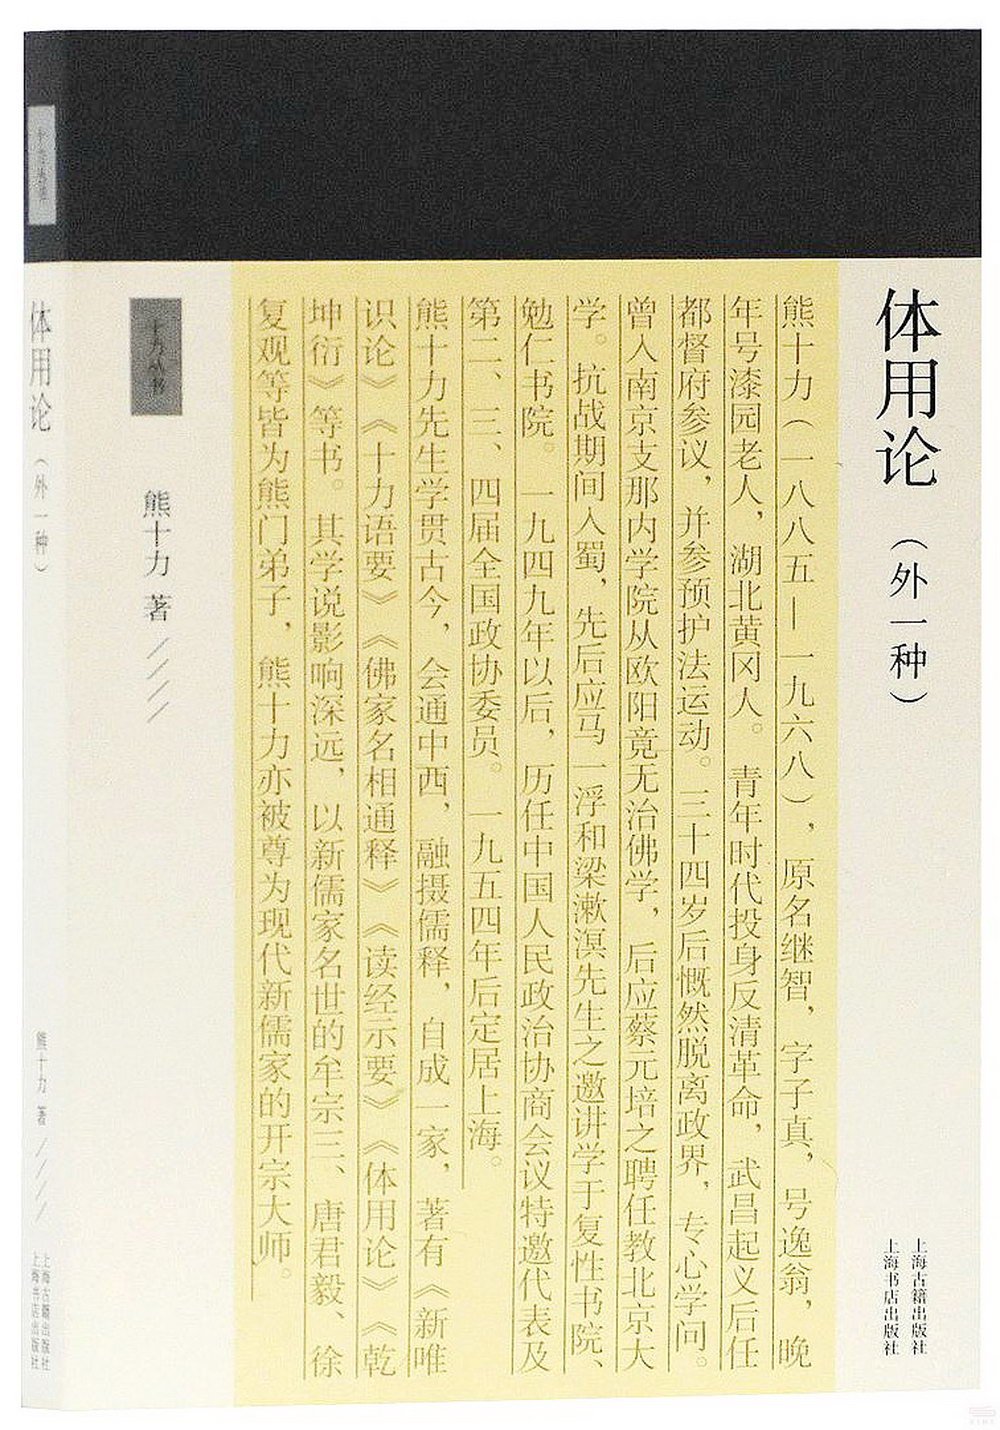 体用论（外一种）
上海古籍出版社
上海书店出版社
熊十力（一八八五—一九六八），原名继智，字子真，号逸翁，晚
年号漆园老人，湖北黄冈人。青年时代投身反清革命，武昌起义后任
都督府参议，并参预护法运动。三十四岁后慨然脱离政界，专心学问。
曾入南京支那内学院从欧阳竟无治佛学，后应蔡元培之聘任教北京大
学。抗战期间入蜀，先后应马一浮和梁漱溟先生之邀讲学于复性书院、
勉仁书院。一九四九年以后，历任中国人民政治协商会议特邀代表及
第二、三、四届全国政协委员。一九五四年后定居上海。
熊十力先生学贯古今，会通中西，融摄儒释，自成一家，著有《新唯
识论》《十力语要》《佛家名相通释》《读经示要》《体用论》《乾
坤衍》等书。其学说影响深远，以新儒家名世的牟宗三、唐君毅、徐
复观等皆为熊门弟子，熊十力亦被尊为现代新儒家的开宗大师。
十力丛书
熊十力 著
体用论（外一种）
熊十力 著
上海古籍出版社
上海书店出版社